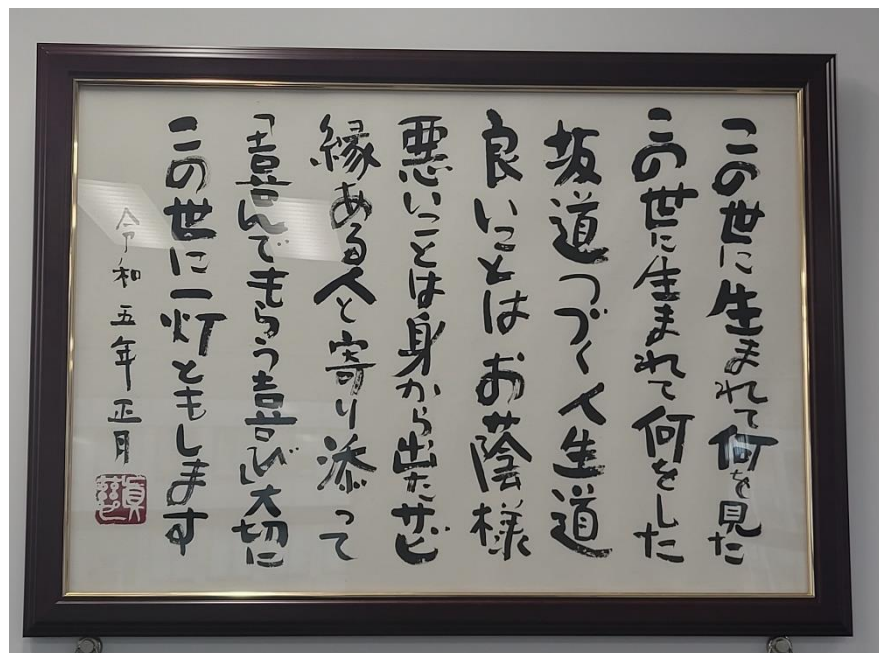 この世に生まれて何を見た
この世に生まれて何をした
坂道つづく人生道
良いことはお蔭様
悪いことは身から出たサビ
縁ある人と寄り添って
「喜んでもらう喜び」大切に
この世に一灯ともします
令和五年正月